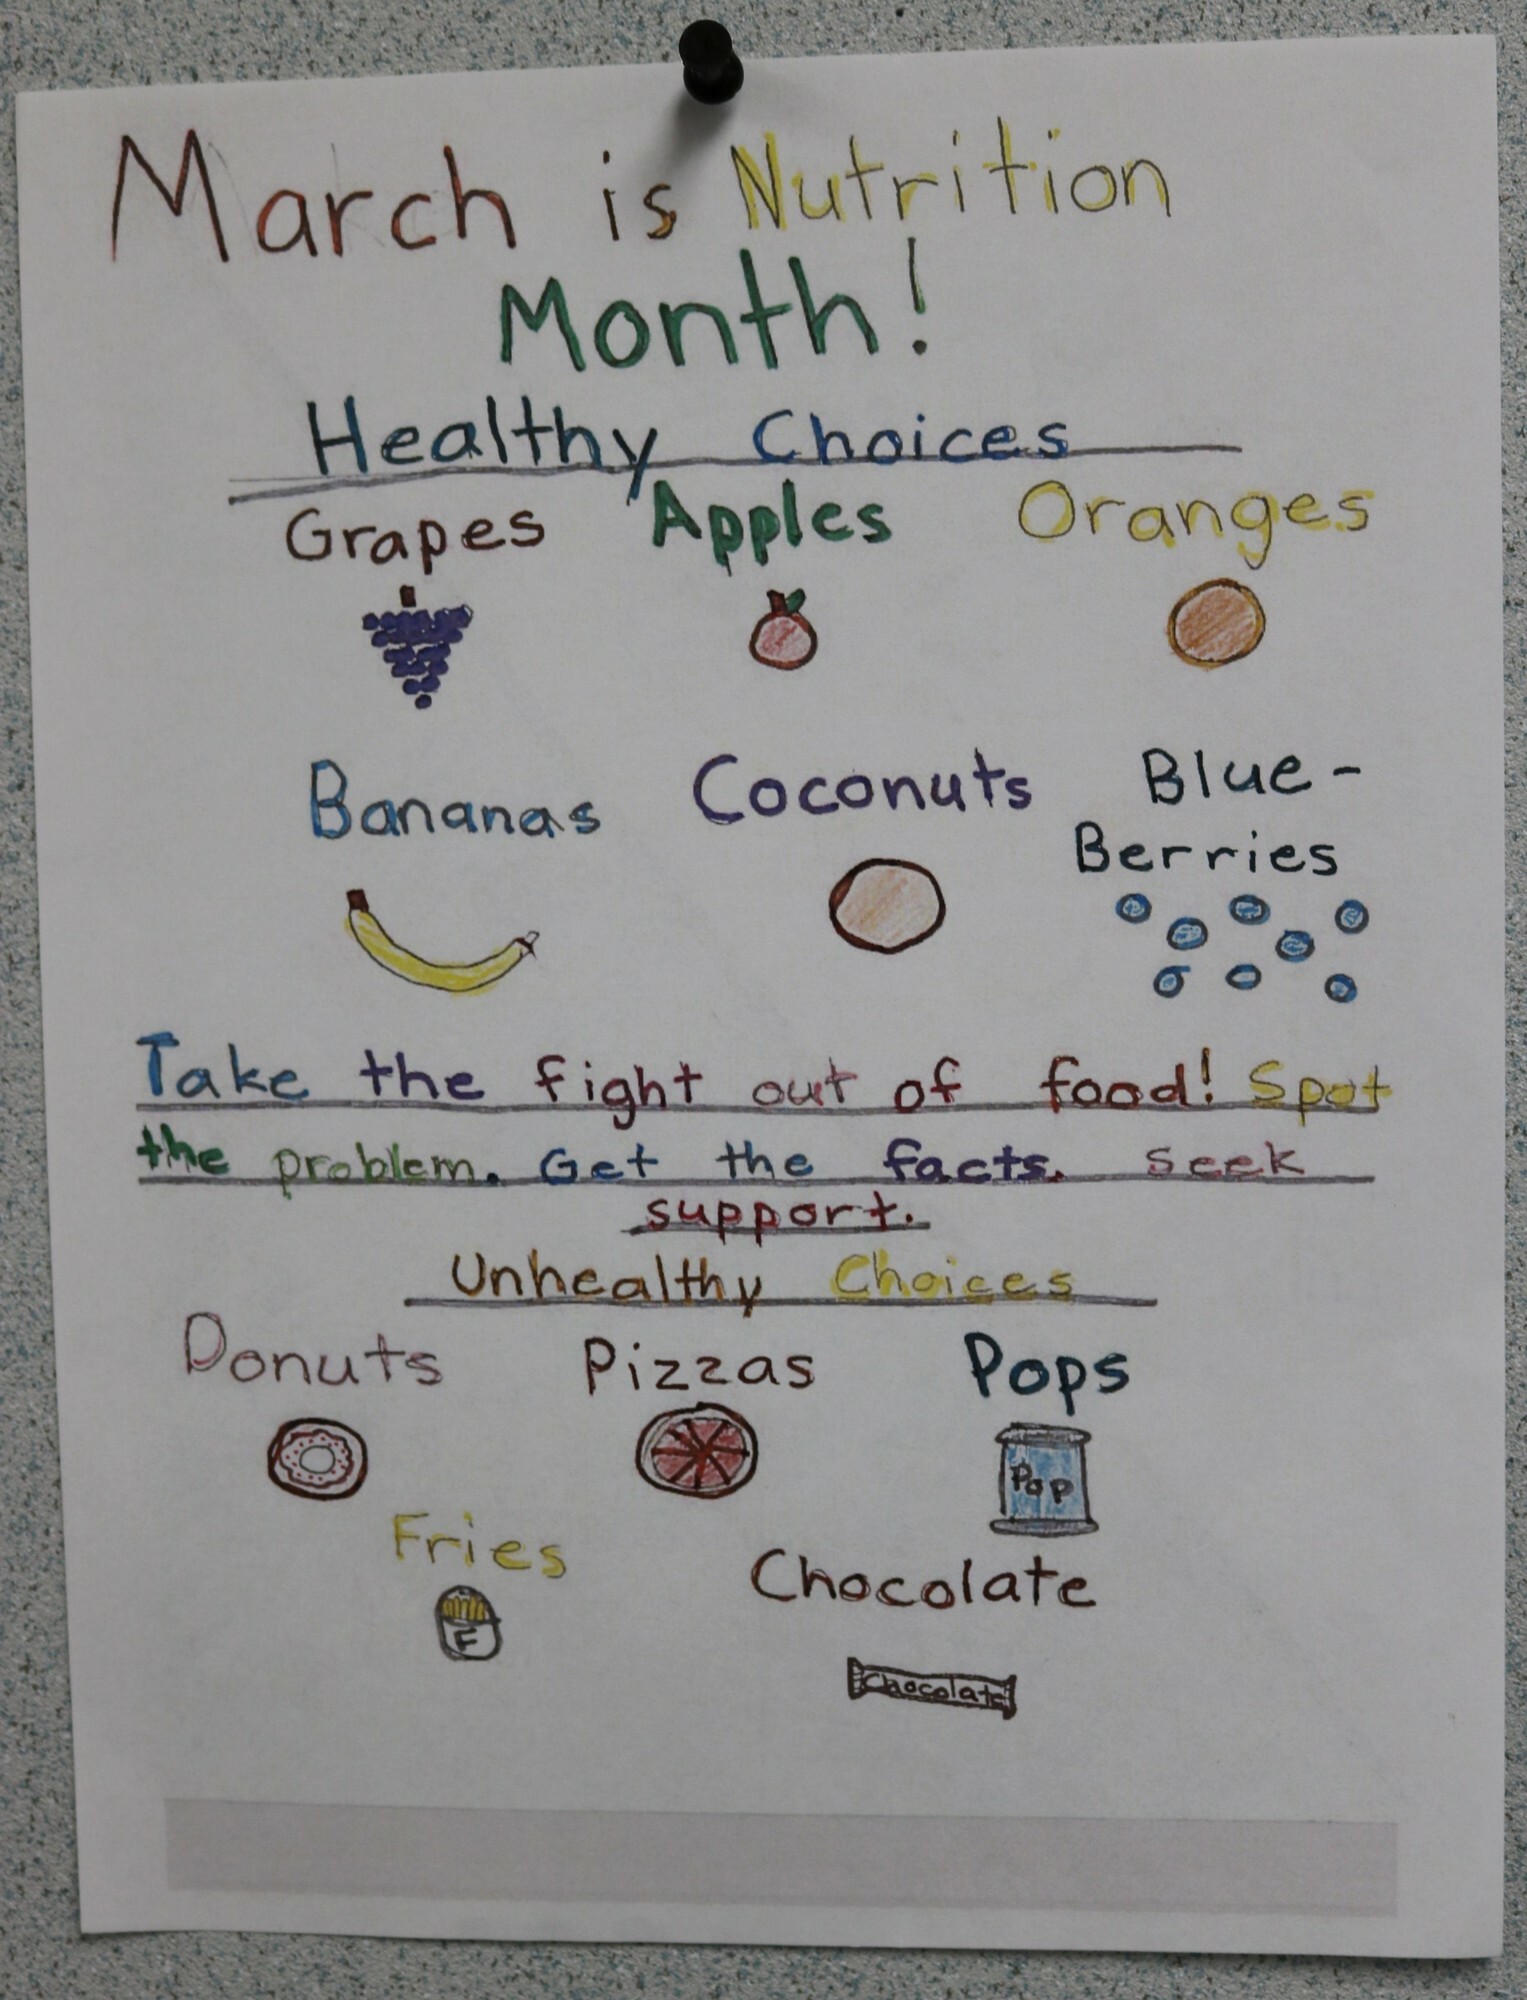 March is Nutrition
Month!
Healthy Choices
Grapes Apples Oranges
Bananas Coconuts Blue-
Berries
Take the fight out of food! Spot
the problem. Get the facts. Seek
support.
Unhealthy Choices
Donuts Pizzas Pops
Pop
Fries Chocolate
F
Chocolate